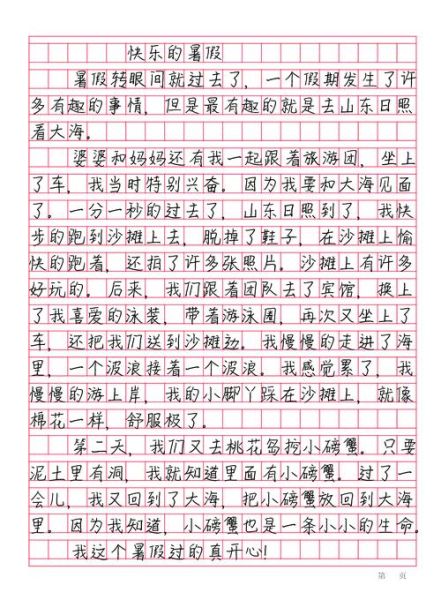 快乐的暑假
暑假转眼间就过去了，一个假期发生了许
多有趣的事情，但是最有趣的就是去山东日照
看大海。
婆婆和妈妈还有我一起跟着旅游团，坐上
了车，我当时特别兴奋。因为我要和大海见面
了。一分一秒的过去了，山东日照到了，我快
步的跑到沙摊上去，脱掉了鞋子，在沙摊上愉
快的跑着，还拍了许多张照片。沙摊上有许多
好玩的。后来，我们跟着团队去了宾馆，换上
了我喜爱的泳装，带着游泳圈，再次又坐上了
车，还把我们送到沙摊边。我慢慢的走进了海
里，一个波浪接着一个波浪。我感觉累了，我
慢慢的游上岸，我的小脚丫踩在沙摊上，就像
棉花一样，舒服极了。
第二天，我们又去桃花岛挖小磅蟹。只要
泥土里有洞，我就知道里面有小磅蟹。过了一
会儿，我又回到了大海，把小磅蟹放回到大海
里。因为我知道，小磅蟹也是一条小小的生命。
我这个暑假过的真开心！
第 页